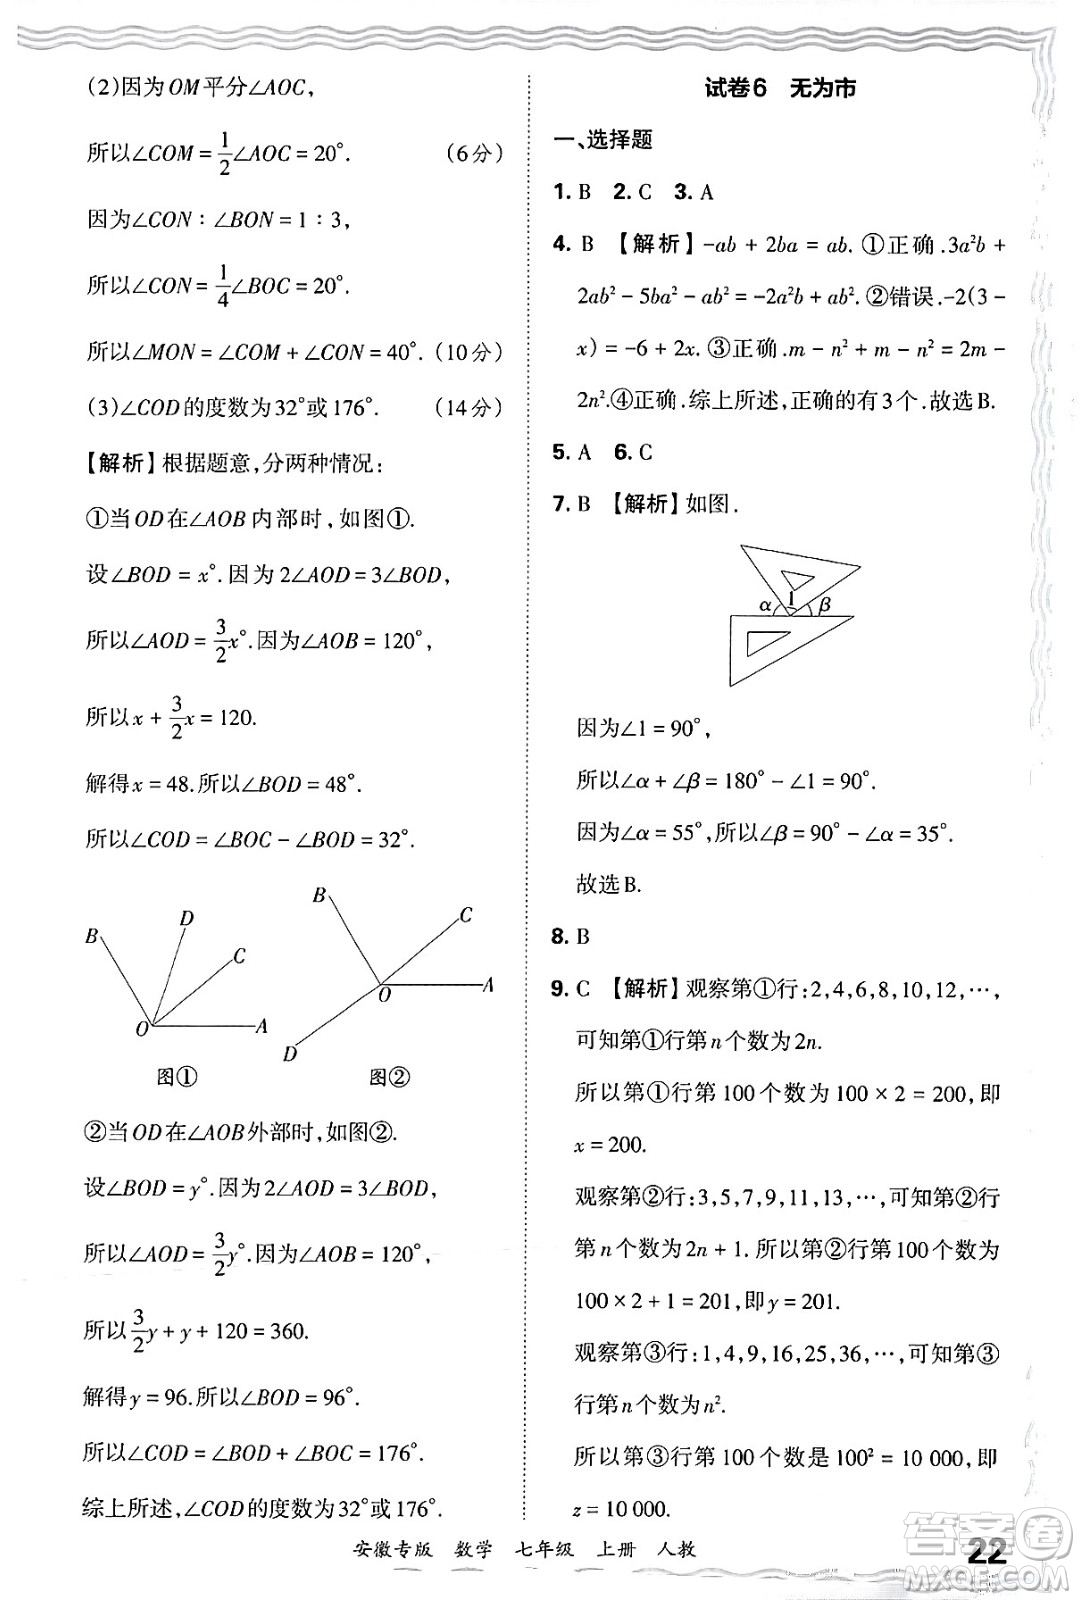 (2)因为OM平分∠AOC,
所以∠COM = 1/2∠AOC = 20°. (6分)
因为∠CON∶∠BON = 1∶3,
所以∠CON = 1/4∠BOC = 20°.
所以∠MON = ∠COM + ∠CON = 40°. (10分)
(3)∠COD的度数为32°或176°. (14分)
【解析】根据题意,分两种情况:
①当OD在∠AOB内部时,如图①.
设∠BOD = x°.因为2∠AOD = 3∠BOD,
所以∠AOD = 3/2x°.因为∠AOB = 120°,
所以x + 3/2x = 120.
解得x = 48.所以∠BOD = 48°.
所以∠COD = ∠BOC - ∠BOD = 32°.
B D C O A
图①
B C O A D
图②
②当OD在∠AOB外部时,如图②.
设∠BOD = y°.因为2∠AOD = 3∠BOD,
所以∠AOD = 3/2y°.因为∠AOB = 120°,
所以3/2y + y + 120 = 360.
解得y = 96.所以∠BOD = 96°.
所以∠COD = ∠BOD + ∠BOC = 176°.
综上所述,∠COD的度数为32°或176°.
试卷6 无为市
一、选择题
1. B 2. C 3. A
4. B 【解析】-ab + 2ba = ab. ①正确.3a²b +
2ab² - 5ba² - ab² = -2a²b + ab².②错误.-2(3 -
x) = -6 + 2x. ③正确.m - n² + m - n² = 2m -
2n².④正确.综上所述,正确的有3个.故选B.
5. A 6. C
7. B 【解析】如图.
α 1 β
因为∠1 = 90°,
所以∠α + ∠β = 180° - ∠1 = 90°.
因为∠α = 55°,所以∠β = 90° - ∠α = 35°.
故选B.
8. B
9. C 【解析】观察第①行:2,4,6,8,10,12,…,
可知第①行第n个数为2n.
所以第①行第100个数为100 × 2 = 200,即
x = 200.
观察第②行:3,5,7,9,11,13,…,可知第②行
第n个数为2n + 1.所以第②行第100个数为
100 × 2 + 1 = 201,即y = 201.
观察第③行:1,4,9,16,25,36,…,可知第③
行第n个数为n².
所以第③行第100个数是100² = 10 000,即
z = 10 000.
安徽专版 数学 七年级 上册 人教
22
答案圈
MXQE.COM